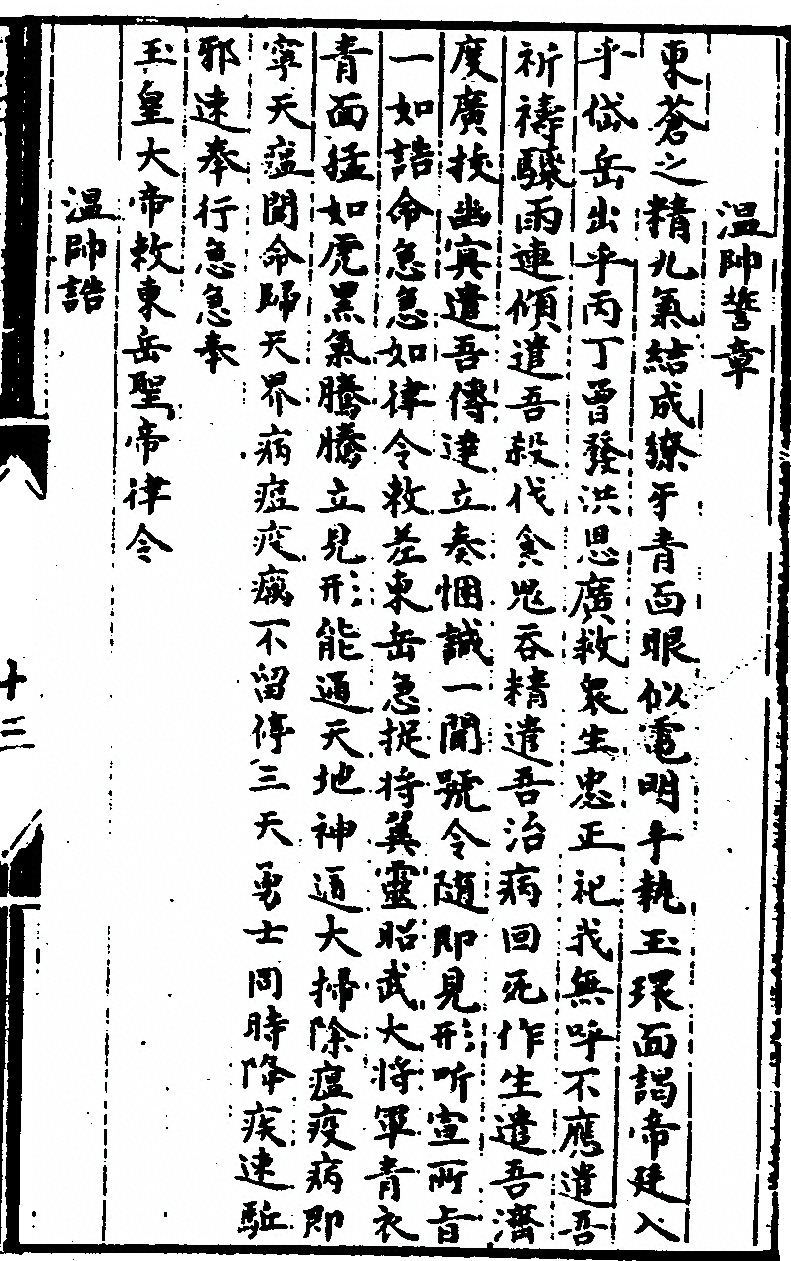 溫帥誓章
東蒼之精九氣結成獠牙青面眼似電明手執玉環面謁帝廷入
乎岱岳出乎丙丁曾發洪恩廣救衆生忠正祀我無呼不應遣吾
祈禱驟雨連傾遣吾殺伐貪鬼吞精遣吾治病回死作生遣吾濟
度廣拔幽冥遣吾傳達立奏悃誠一聞號令隨即見形听宣所旨
一如誥命急急如律令敕差東岳急捉將翼靈昭武大將軍青衣
青面猛如虎黑氣騰騰立見形能通天地神通大掃除瘟疫病即
寧天瘟聞命歸天界病瘟疫癘不留停三天勇士同時降疾速駈
邪速奉行急急奉
玉皇大帝敕東岳聖帝律令
溫帥誥
十三